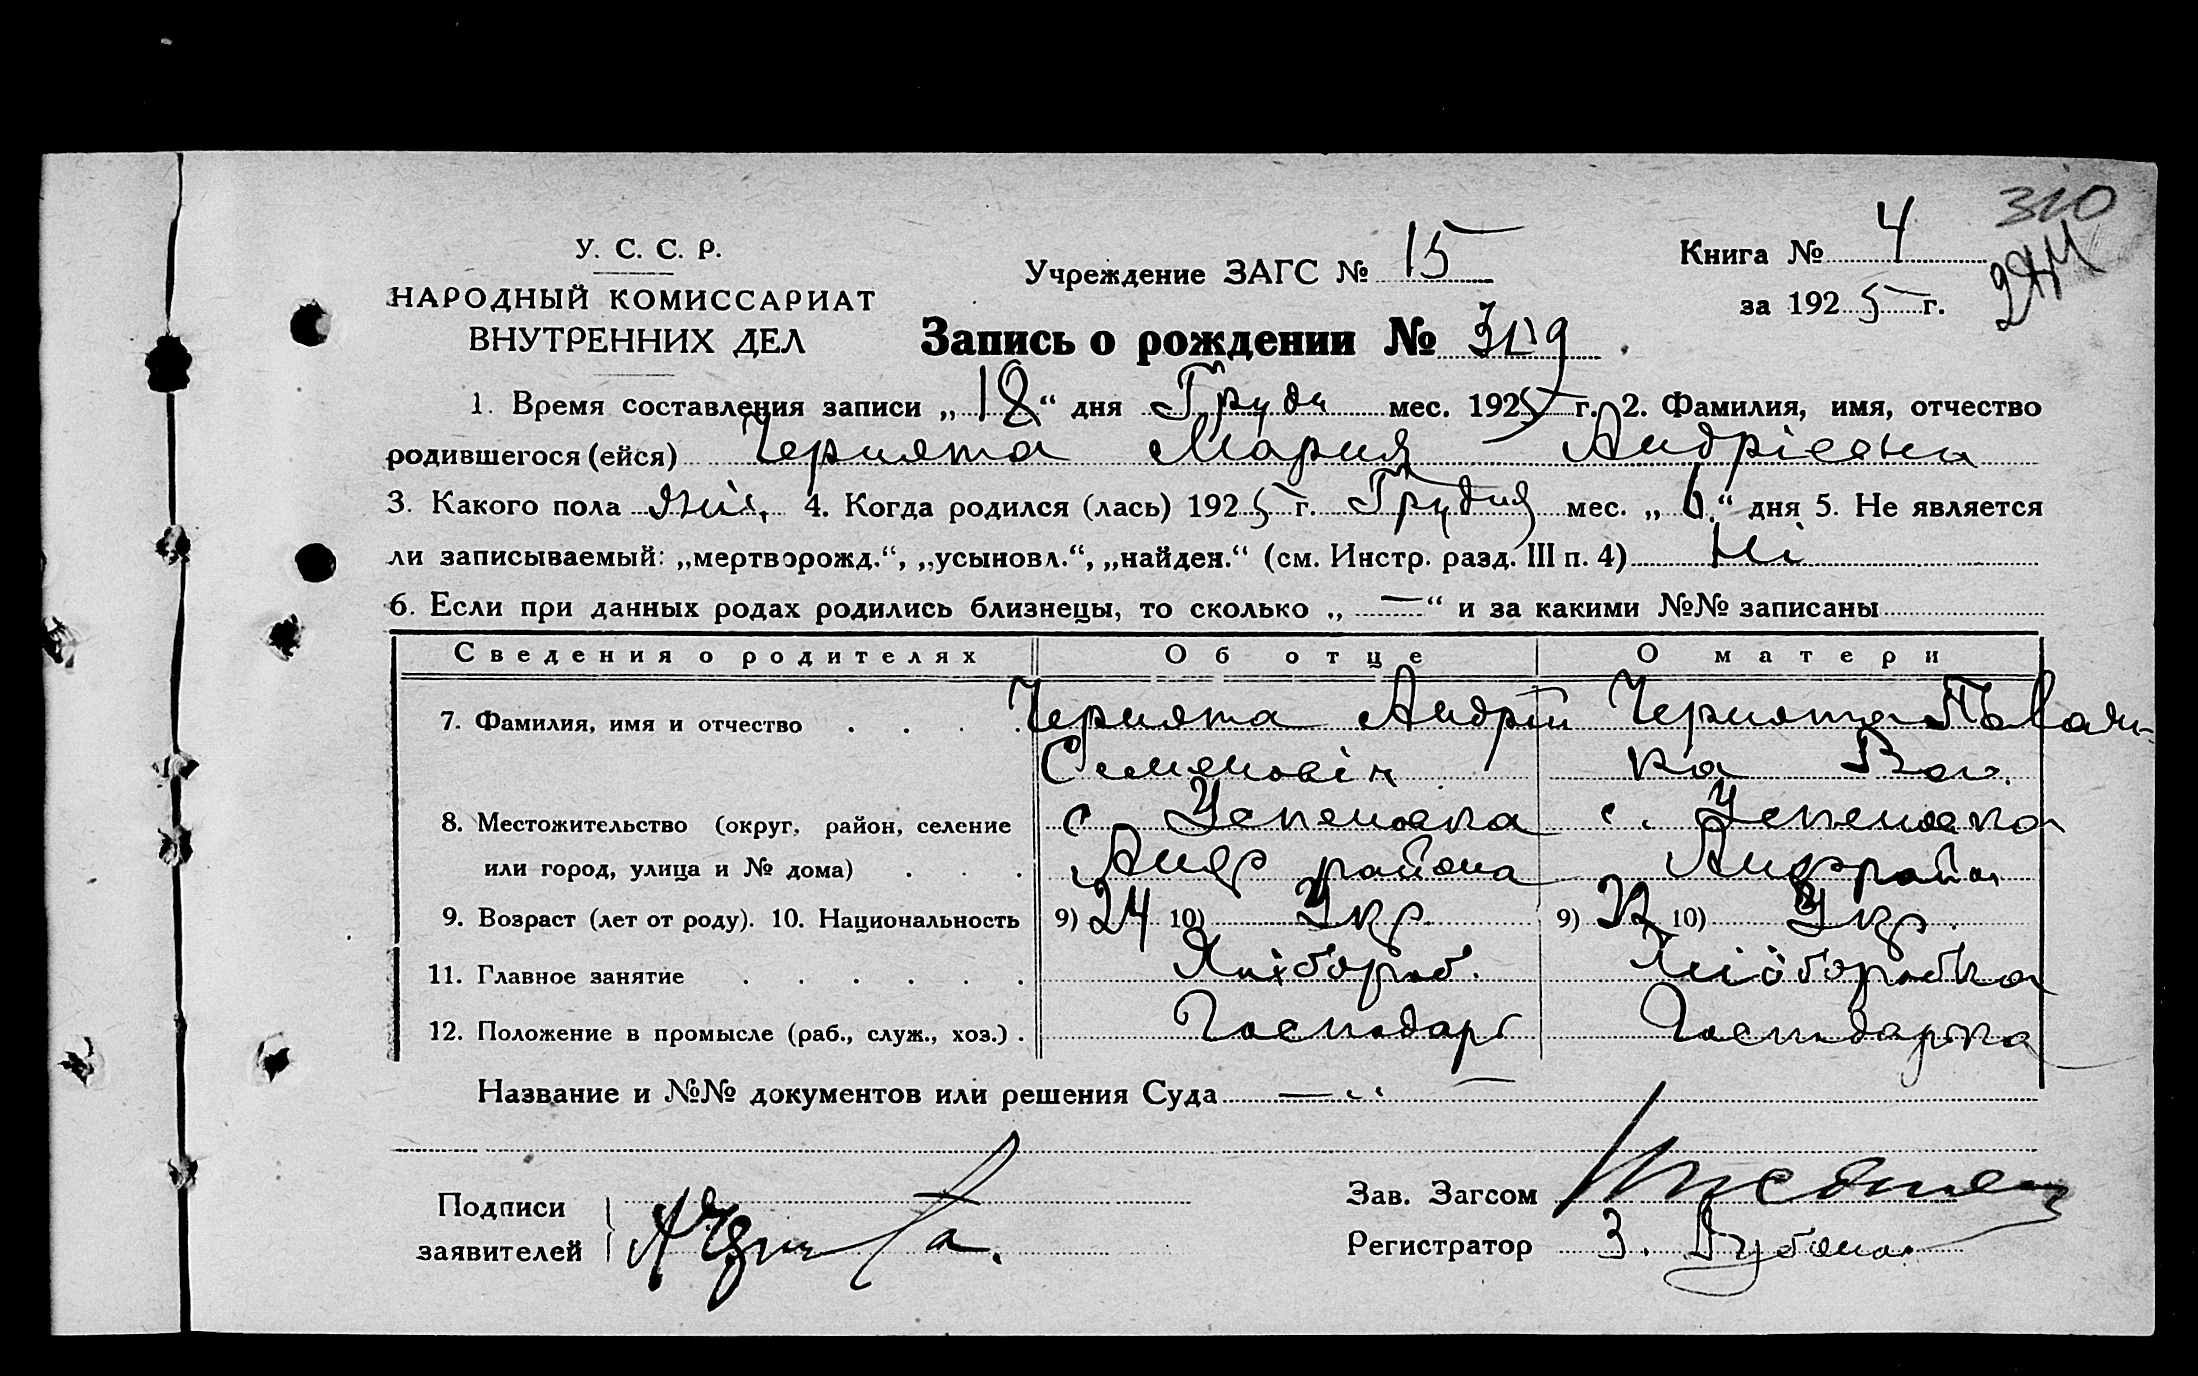 310
У. С. С. Р.
НАРОДНЫЙ КОМИССАРИАТ
ВНУТРЕННИХ ДЕЛ
Учреждение ЗАГС № 15
Книга № 4
за 1925 г.
Запись о рождении №
1. Время составления записи „18“ дня Грудн мес. 1925 г. 2. Фамилия, имя, отчество
родившегося (ейся) Чернята Мария Андріевна
3. Какого пола жін. 4. Когда родился (лась) 1925 г. Грудня мес. „6“ дня 5. Не является
ли записываемый: „мертворожд.“, „усыновл.“, „найден.“ (см. Инстр. разд. III п. 4) Ні
6. Если при данных родах родились близнецы, то сколько „—“ и за какими №№ записаны
Сведения о родителях Об отце О матери
7. Фамилия, имя и отчество Чернята Андрій Чернята
Семенович ка
8. Местожительство (округ, район, селение с Успеновка с. Успеновка
или город, улица и № дома) Андр района Андррайон
9. Возраст (лет от роду). 10. Национальность 9) 24 10) Укр. 9) 10) Укр.
11. Главное занятие Хлібороб. Хліборобка
12. Положение в промысле (раб., служ., хоз.) Господарь Господарка
Название и №№ документов или решения Суда
Подписи
заявителей
Зав. Загсом
Регистратор З.